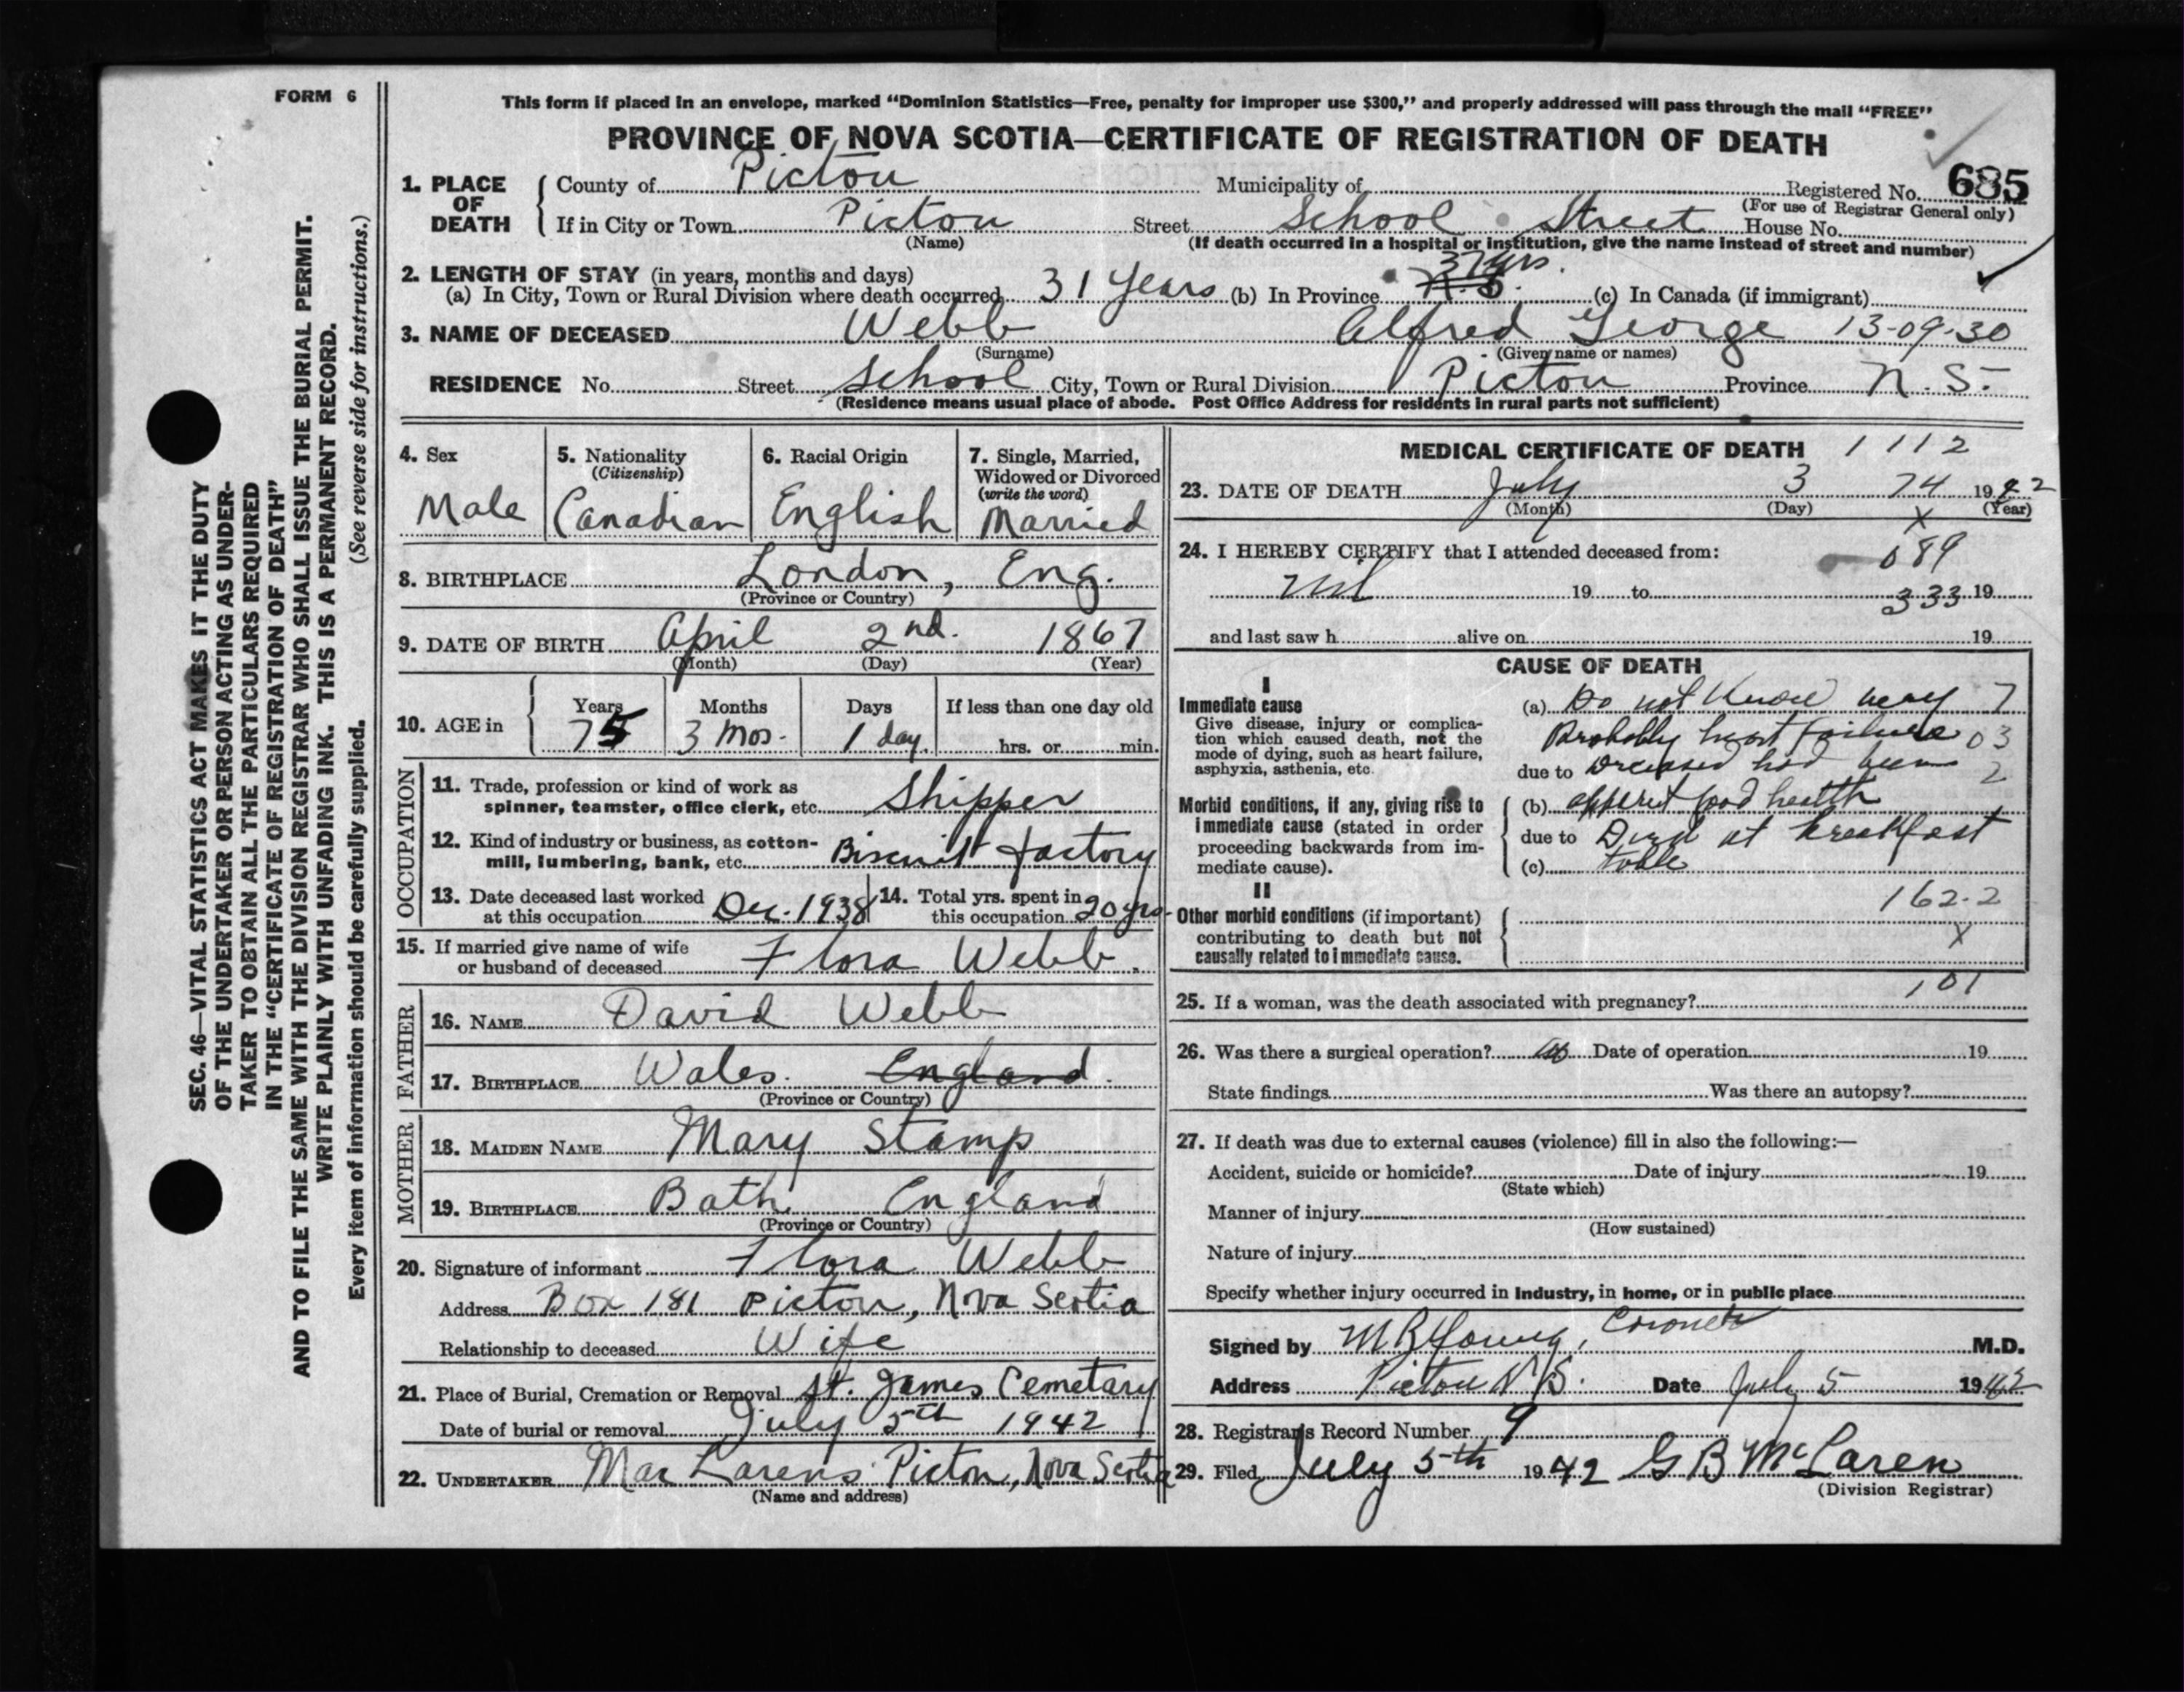 FORM 6
This form if placed in an envelope, marked “Dominion Statistics—Free, penalty for improper use $300,” and properly addressed will pass through the mail “FREE”
PROVINCE OF NOVA SCOTIA—CERTIFICATE OF REGISTRATION OF DEATH
1. PLACE OF DEATH County of Pictou Municipality of Registered No. 685
(For use of Registrar General only)
If in City or Town Pictou Street School Street House No.
(Name) (If death occurred in a hospital or institution, give the name instead of street and number)
2. LENGTH OF STAY (in years, months and days)
(a) In City, Town or Rural Division where death occurred 31 Years (b) In Province N.S. 37 yrs. (c) In Canada (if immigrant)
3. NAME OF DECEASED Webb Alfred George 13-09-30
(Surname) (Given name or names)
RESIDENCE No. Street School City, Town or Rural Division Pictou Province N.S.
(Residence means usual place of abode. Post Office Address for residents in rural parts not sufficient)
4. Sex
Male
5. Nationality
(Citizenship)
Canadian
6. Racial Origin
English
7. Single, Married,
Widowed or Divorced
(write the word)
Married
8. BIRTHPLACE London, Eng.
(Province or Country)
9. DATE OF BIRTH April 2nd. 1867
(Month) (Day) (Year)
10. AGE in Years Months Days If less than one day old
75 3 Mos. 1 day. hrs. or min.
OCCUPATION
11. Trade, profession or kind of work as
spinner, teamster, office clerk, etc. Shipper
12. Kind of industry or business, as cotton-
mill, lumbering, bank, etc. Biscuit factory
13. Date deceased last worked
at this occupation Dec. 1938
14. Total yrs. spent in
this occupation 20 yrs.
15. If married give name of wife
or husband of deceased Flora Webb.
FATHER
16. NAME David Webb
17. BIRTHPLACE Wales. England.
(Province or Country)
MOTHER
18. MAIDEN NAME Mary Stamp
19. BIRTHPLACE Bath England
(Province or Country)
20. Signature of informant Flora Webb
Address Box 181 Pictou, Nova Scotia
Relationship to deceased Wife
21. Place of Burial, Cremation or Removal St. James Cemetary
Date of burial or removal July 5th 1942
22. UNDERTAKER MacLarens Pictou, Nova Scotia
(Name and address)
MEDICAL CERTIFICATE OF DEATH 1112
23. DATE OF DEATH July 3 74 1942
(Month) (Day) (Year)
X
24. I HEREBY CERTIFY that I attended deceased from: 089
nil 19 to 333 19
and last saw h alive on 19
CAUSE OF DEATH
I
Immediate cause
Give disease, injury or complica-
tion which caused death, not the
mode of dying, such as heart failure,
asphyxia, asthenia, etc.
(a) Do not know 7
Probably heart failure 03
due to Deceased had been 2
Morbid conditions, if any, giving rise to
immediate cause (stated in order
proceeding backwards from im-
mediate cause).
(b) good health
due to Died at breakfast
(c) table
II
162-2
Other morbid conditions (if important)
contributing to death but not
causally related to immediate cause.
X
25. If a woman, was the death associated with pregnancy? 101
26. Was there a surgical operation? no Date of operation 19
State findings Was there an autopsy?
27. If death was due to external causes (violence) fill in also the following:—
Accident, suicide or homicide? Date of injury 19
(State which)
Manner of injury
(How sustained)
Nature of injury
Specify whether injury occurred in industry, in home, or in public place
Signed by M R Young, Coroner M.D.
Address Pictou N.S. Date July 5 1942
28. Registrar's Record Number 9
29. Filed July 5th 1942 G B McLaren
(Division Registrar)
SEC. 46—VITAL STATISTICS ACT MAKES IT THE DUTY
OF THE UNDERTAKER OR PERSON ACTING AS UNDER-
TAKER TO OBTAIN ALL THE PARTICULARS REQUIRED
IN THE “CERTIFICATE OF REGISTRATION OF DEATH”
AND TO FILE THE SAME WITH THE DIVISION REGISTRAR WHO SHALL ISSUE THE BURIAL PERMIT.
WRITE PLAINLY WITH UNFADING INK. THIS IS A PERMANENT RECORD.
Every item of information should be carefully supplied. (See reverse side for instructions.)